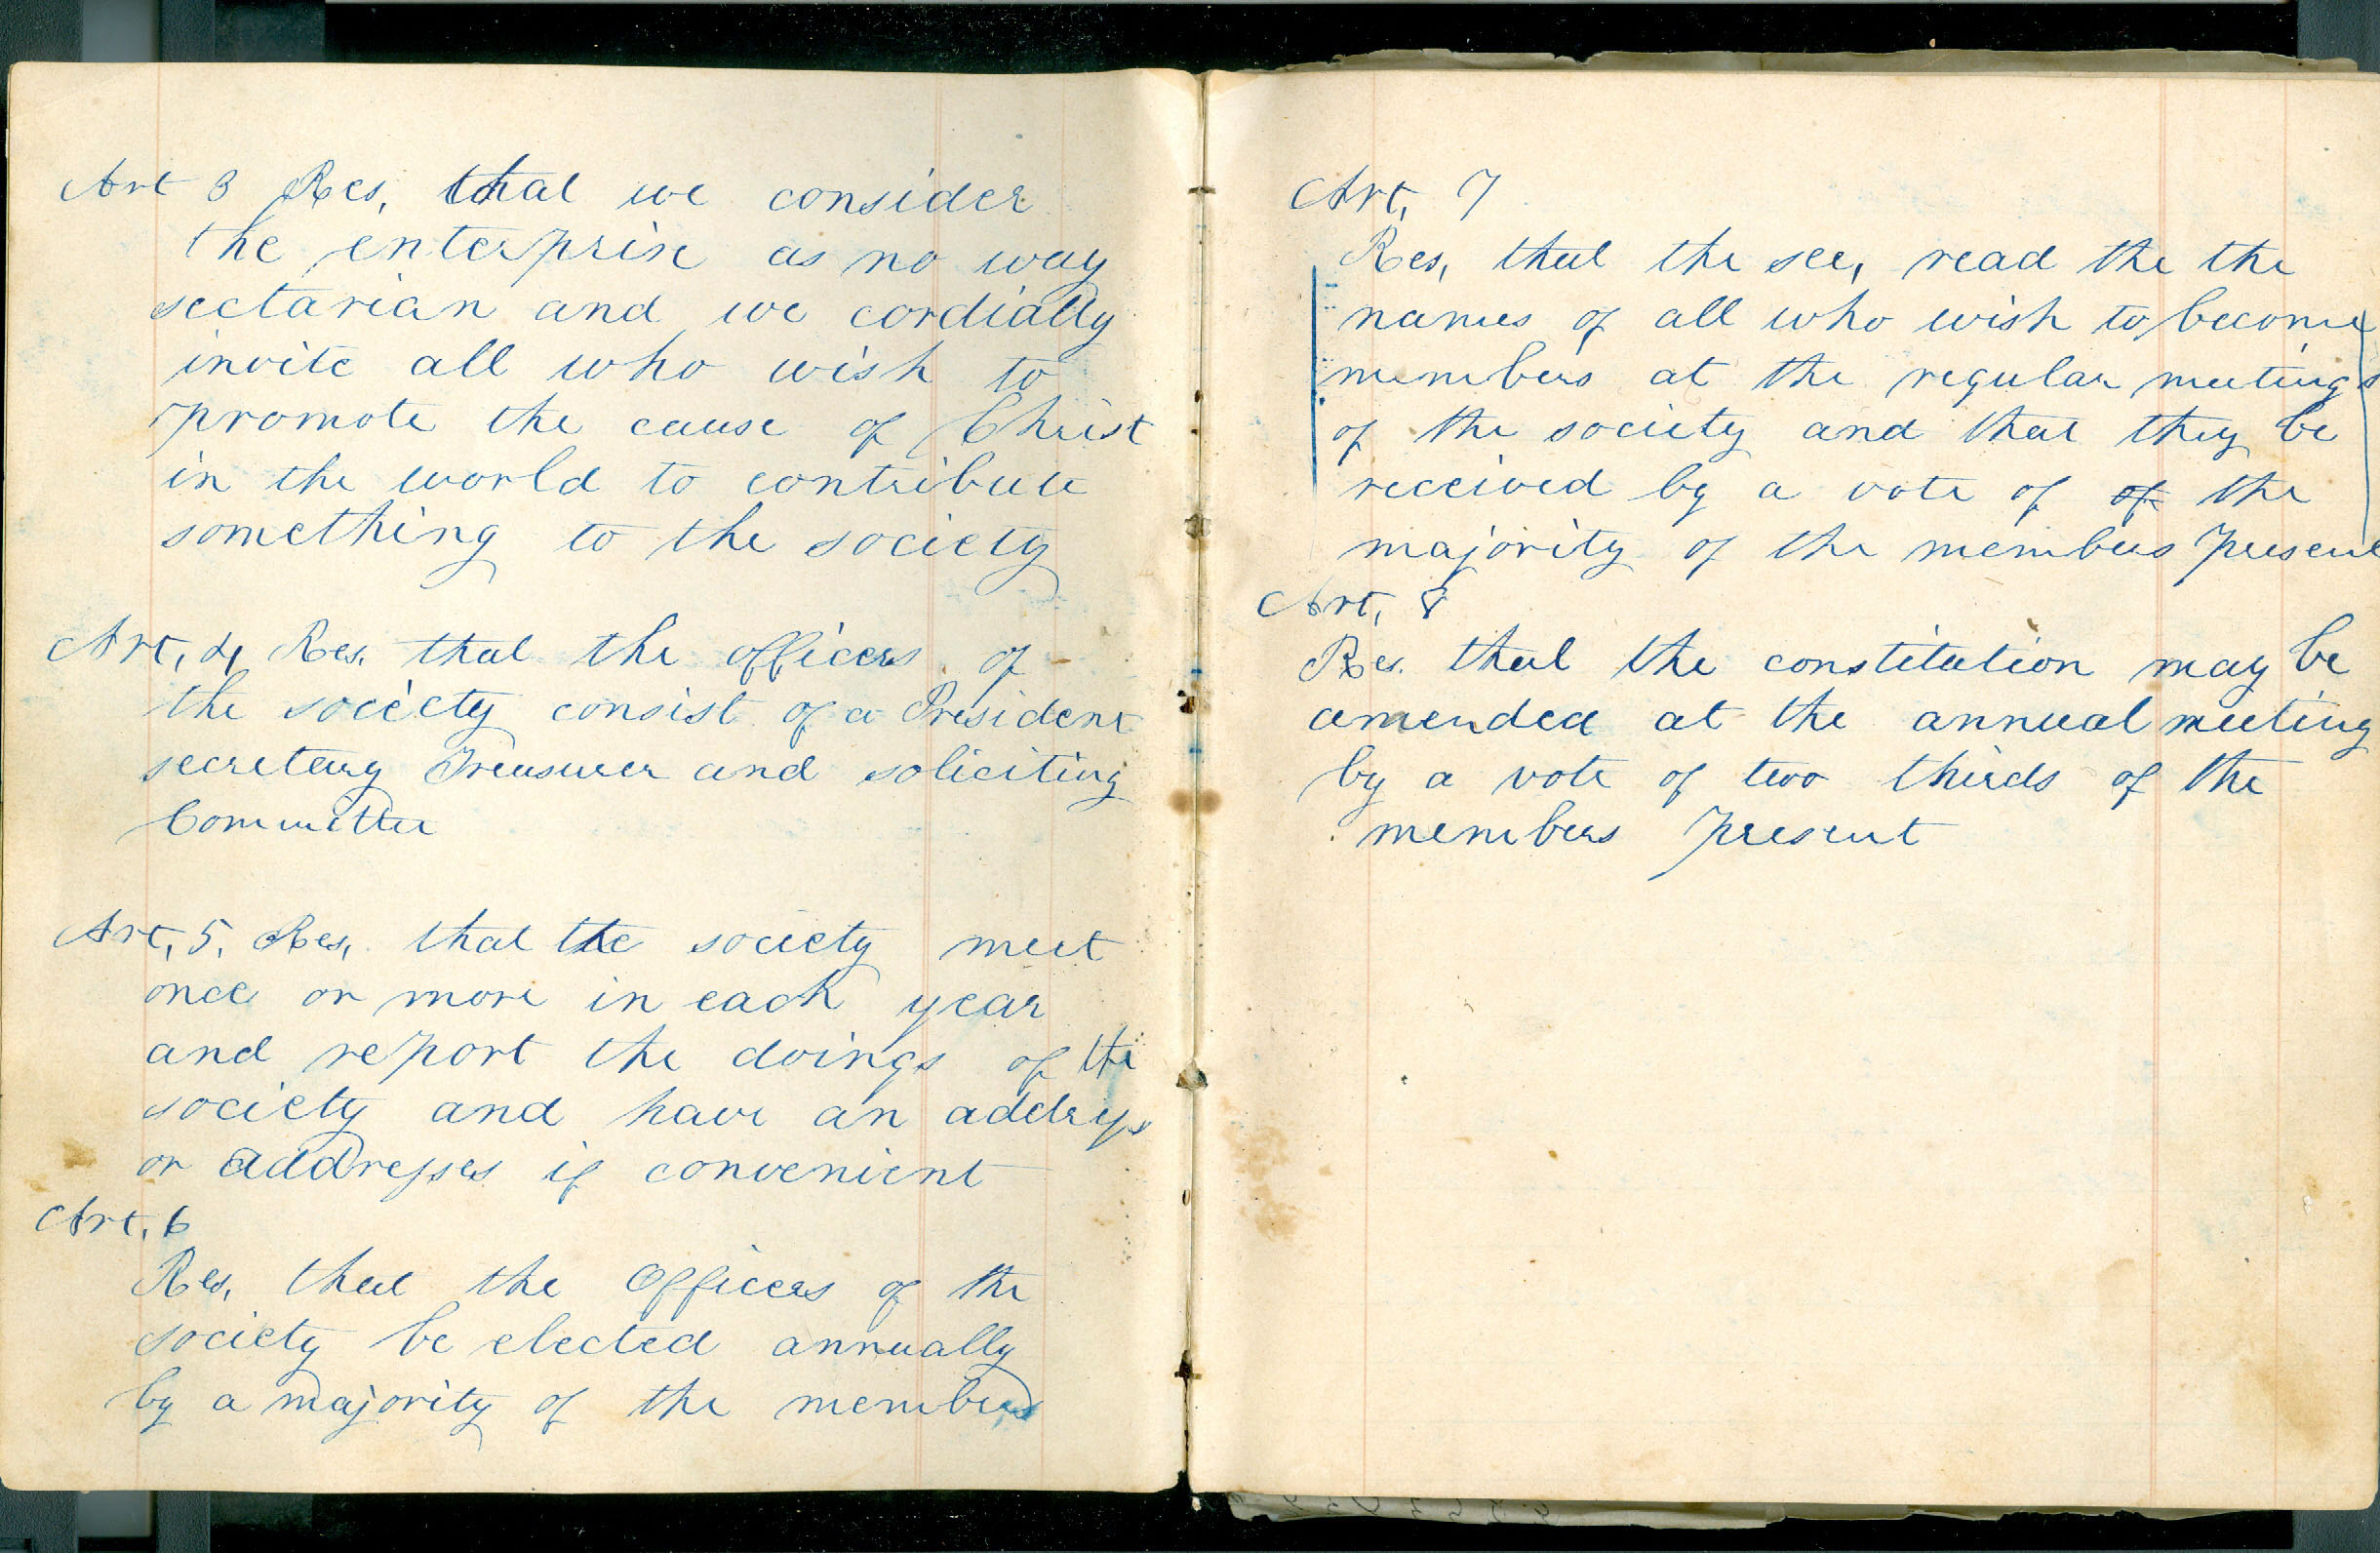 Art 3 Res, that we consider
the enterprise as no way
sectarian and we cordially
invite all who wish to
promote the cause of Christ
in the world to contribute
something to the society
Art, 4 Res. that the officers of
the society consist of a President
secretary Treasurer and soliciting
Committee
Art, 5, Res, that the society meet
once or more in each year
and report the doings of the
society and have an address
or addresses if convenient
Art. 6
Res, that the Officers of the
society be elected annually
by a majority of the members
Art, 7
Res, that the sec, read the the
names of all who wish to become
members at the regular meetings
of the society and that they be
received by a vote of of the
majority of the members present
Art, 8
Res. that the constitution may be
amended at the annual meeting
by a vote of two thirds of the
members present